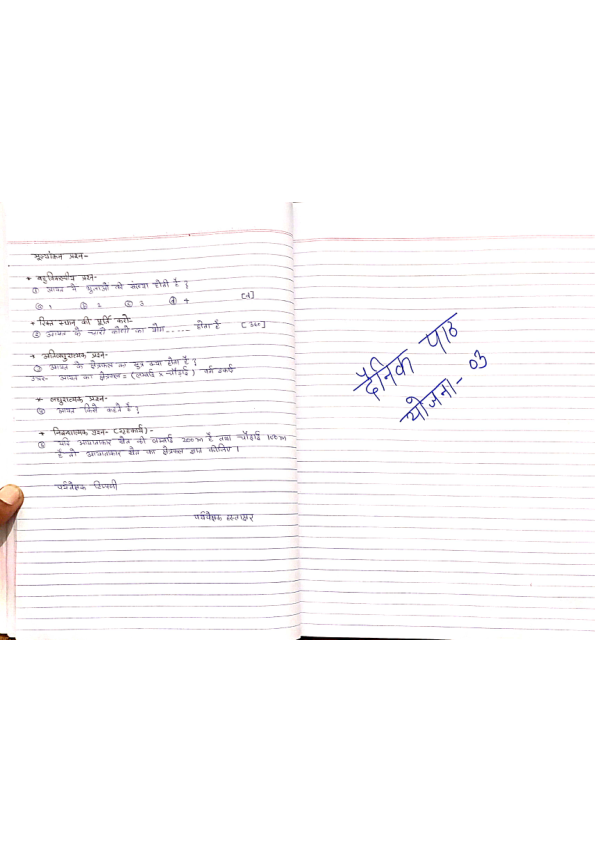 मूल्यांकन प्रश्न-
* बहुविकल्पीय प्रश्न-
① आयत में भुजाओं की संख्या होती है ;
ⓐ 1 ⓑ 2 ⓒ 3 ⓓ 4 [d]
* रिक्त स्थान की पूर्ति करो-
② आयत के चारों कोणों का योग ..... होता है [360]
* अतिलघुरात्मक प्रश्न-
③ आयत के क्षेत्रफल का सूत्र क्या होता है ;
उत्तर- आयत का क्षेत्रफल = (लम्बाई x चौड़ाई) वर्ग इकाई
* लघुरात्मक प्रश्न-
④ आयत किसे कहते हैं ;
* निबन्धात्मक प्रश्न- (गृहकार्य)-
⑤ यदि आयाताकार खेत की लम्बाई 200m है तथा चौड़ाई 100m
है तो आयाताकार खेत का क्षेत्रफल ज्ञात कीजिए।
पर्यवेक्षक टिप्पणी
पर्यवेक्षक हस्ताक्षर
दैनिक पाठ
योजना- 03